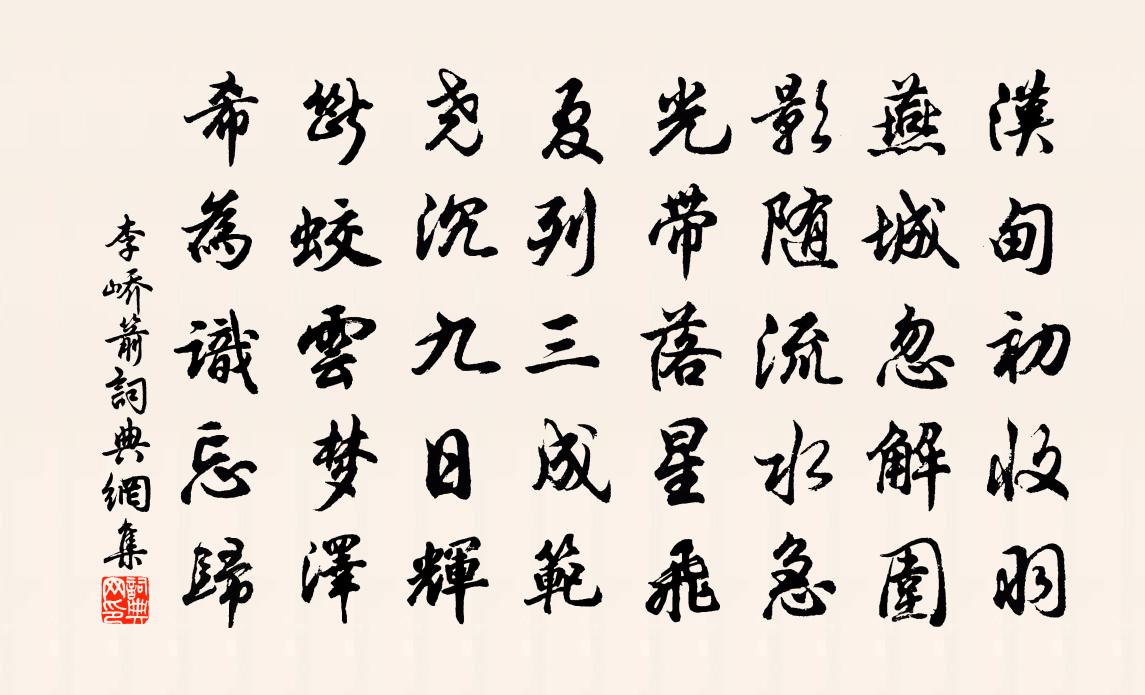 漢甸初收羽
燕城忽解圍
影随流水急
光带落星飛
夏列三成範
堯沉九日輝
斷蛟雲梦澤
希為識忘歸
李嶠箭詞典網集
詞典网印